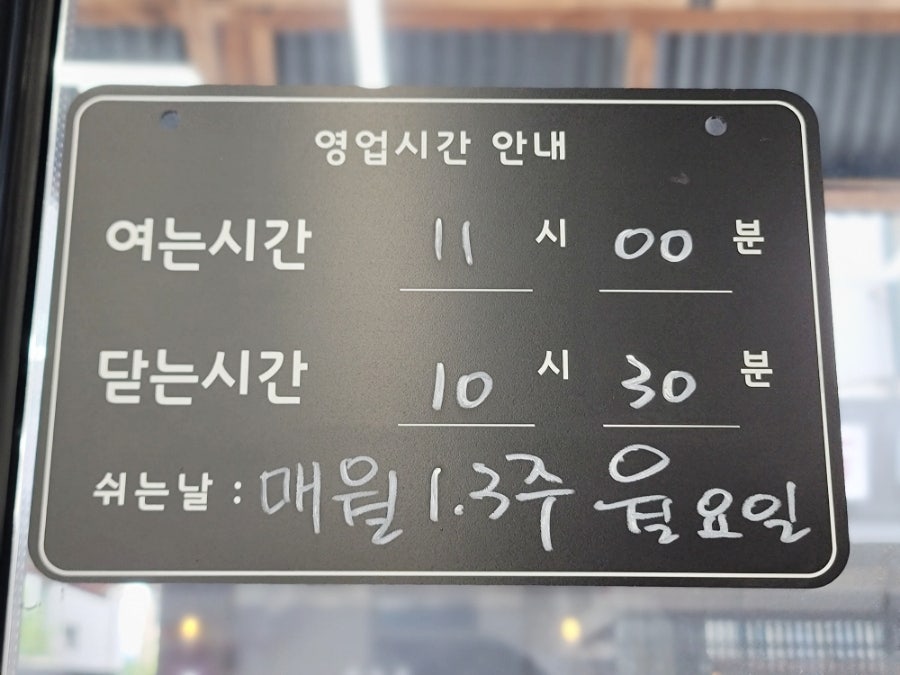 영업시간 안내
여는시간 11 시 00 분
닫는시간 10 시 30 분
쉬는날 : 매월 1.3주 월요일